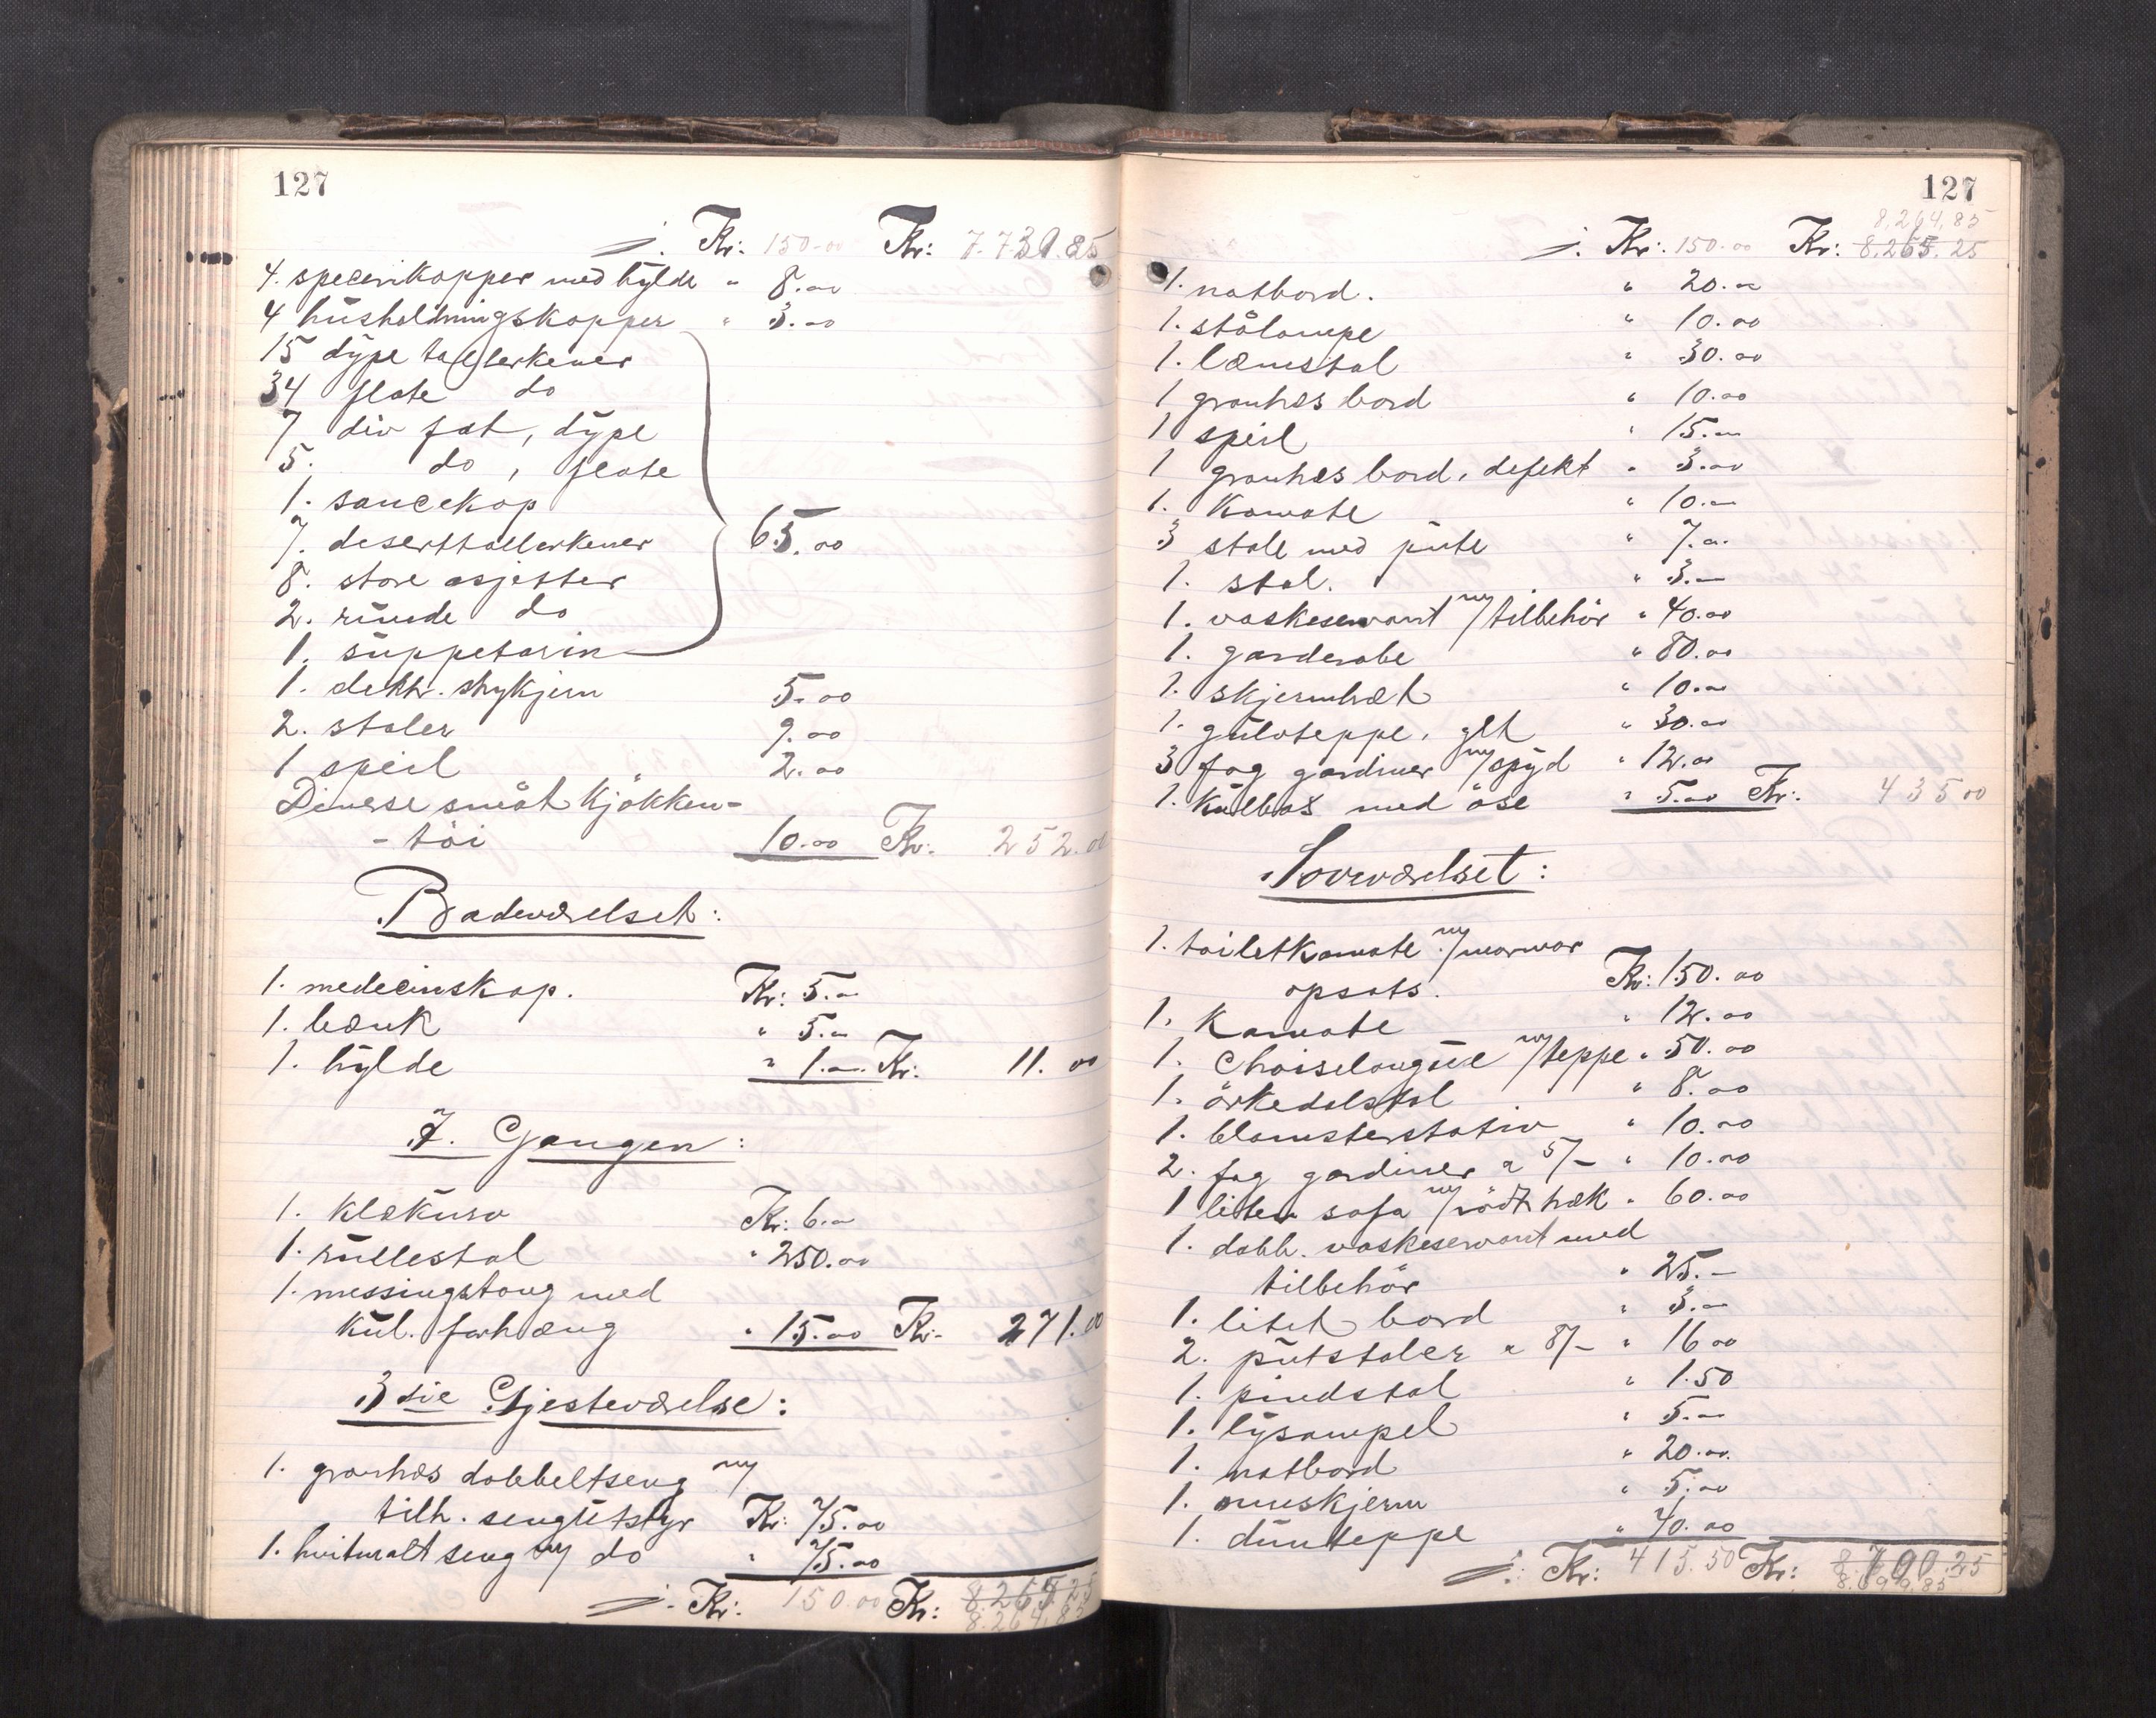 127
Kr: 150.00 Kr: 7.731.85
4. specerikopper med hylde " 8.00
4 husholdningskopper " 3.00
15 dype tallerkener
34 flate do
7 div fat, dype
5. do, flate
1. saucekop
7. deserttallerkener
8. store asjetter
2. runde do
1. suppeterin
65.00
1. elektr. strykjern 5.00
2. stoler 9.00
1 speil 2.00
Diverse småt kjøkken-
- töi 10.00 Kr. 252.00
Badeværelset:
1. medecinskap. Kr: 5.00
1. bænk " 5.00
1. hylde " 1.00 Kr: 11.00
I. Gangen:
1. klækurv Kr: 6.00
1. rullestol " 250.00
1. messingstang med
kul. forhæng " 15.00 Kr. 271.00
3die Gjesteværelse:
1. granhæs dobbeltseng m/
tilh. sengutstyr Kr: 75.00
1. hvitmalt seng m/ do " 75.00
Kr: 150.00 Kr: 8.265.25
8.264.85
127
8.264,85
Kr: 150.00 Kr: 8.265.25
1. natbord. " 20.00
1. stålampe " 10.00
1. lænstol " 30.00
1 granhæs bord " 10.00
1 speil " 15.00
1 granhæs bord, defekt " 3.00
1. Komode " 10.00
3 stole med pute " 7.00
1. stol. " 3.00
1. vaskeservant m/tilbehör " 40.00
1. garderobe " 80.00
1. skjermbræt " 10.00
1. gulvteppe, glt " 30.00
3 fag gardiner m/spyd " 12.00
1. kulboks med öse " 5.00 Kr: 435 00
Soveværelset:
1. toiletkomode m/marmor
opsats. Kr: 150.00
1. Komode " 12.00
1. Chaiselongue m/teppe " 50.00
1. örkedalstol " 8.00
1. blomsterstativ " 10.00
2. fag gardiner a 5/- " 10.00
1 liten sofa m/rödt træk " 60.00
1. dobb. vaskeservant med
tilbehör " 25.-
1. litet bord " 3.00
2. putstoler a 8/- " 16 00
1. pindstol " 1.50
1. lysampel " 5.00
1. natbord " 20.00
1. ovnskjerm " 5.00
1. dunteppe " 40.00
Kr: 415.50 Kr: 8.700.25
8.699.85